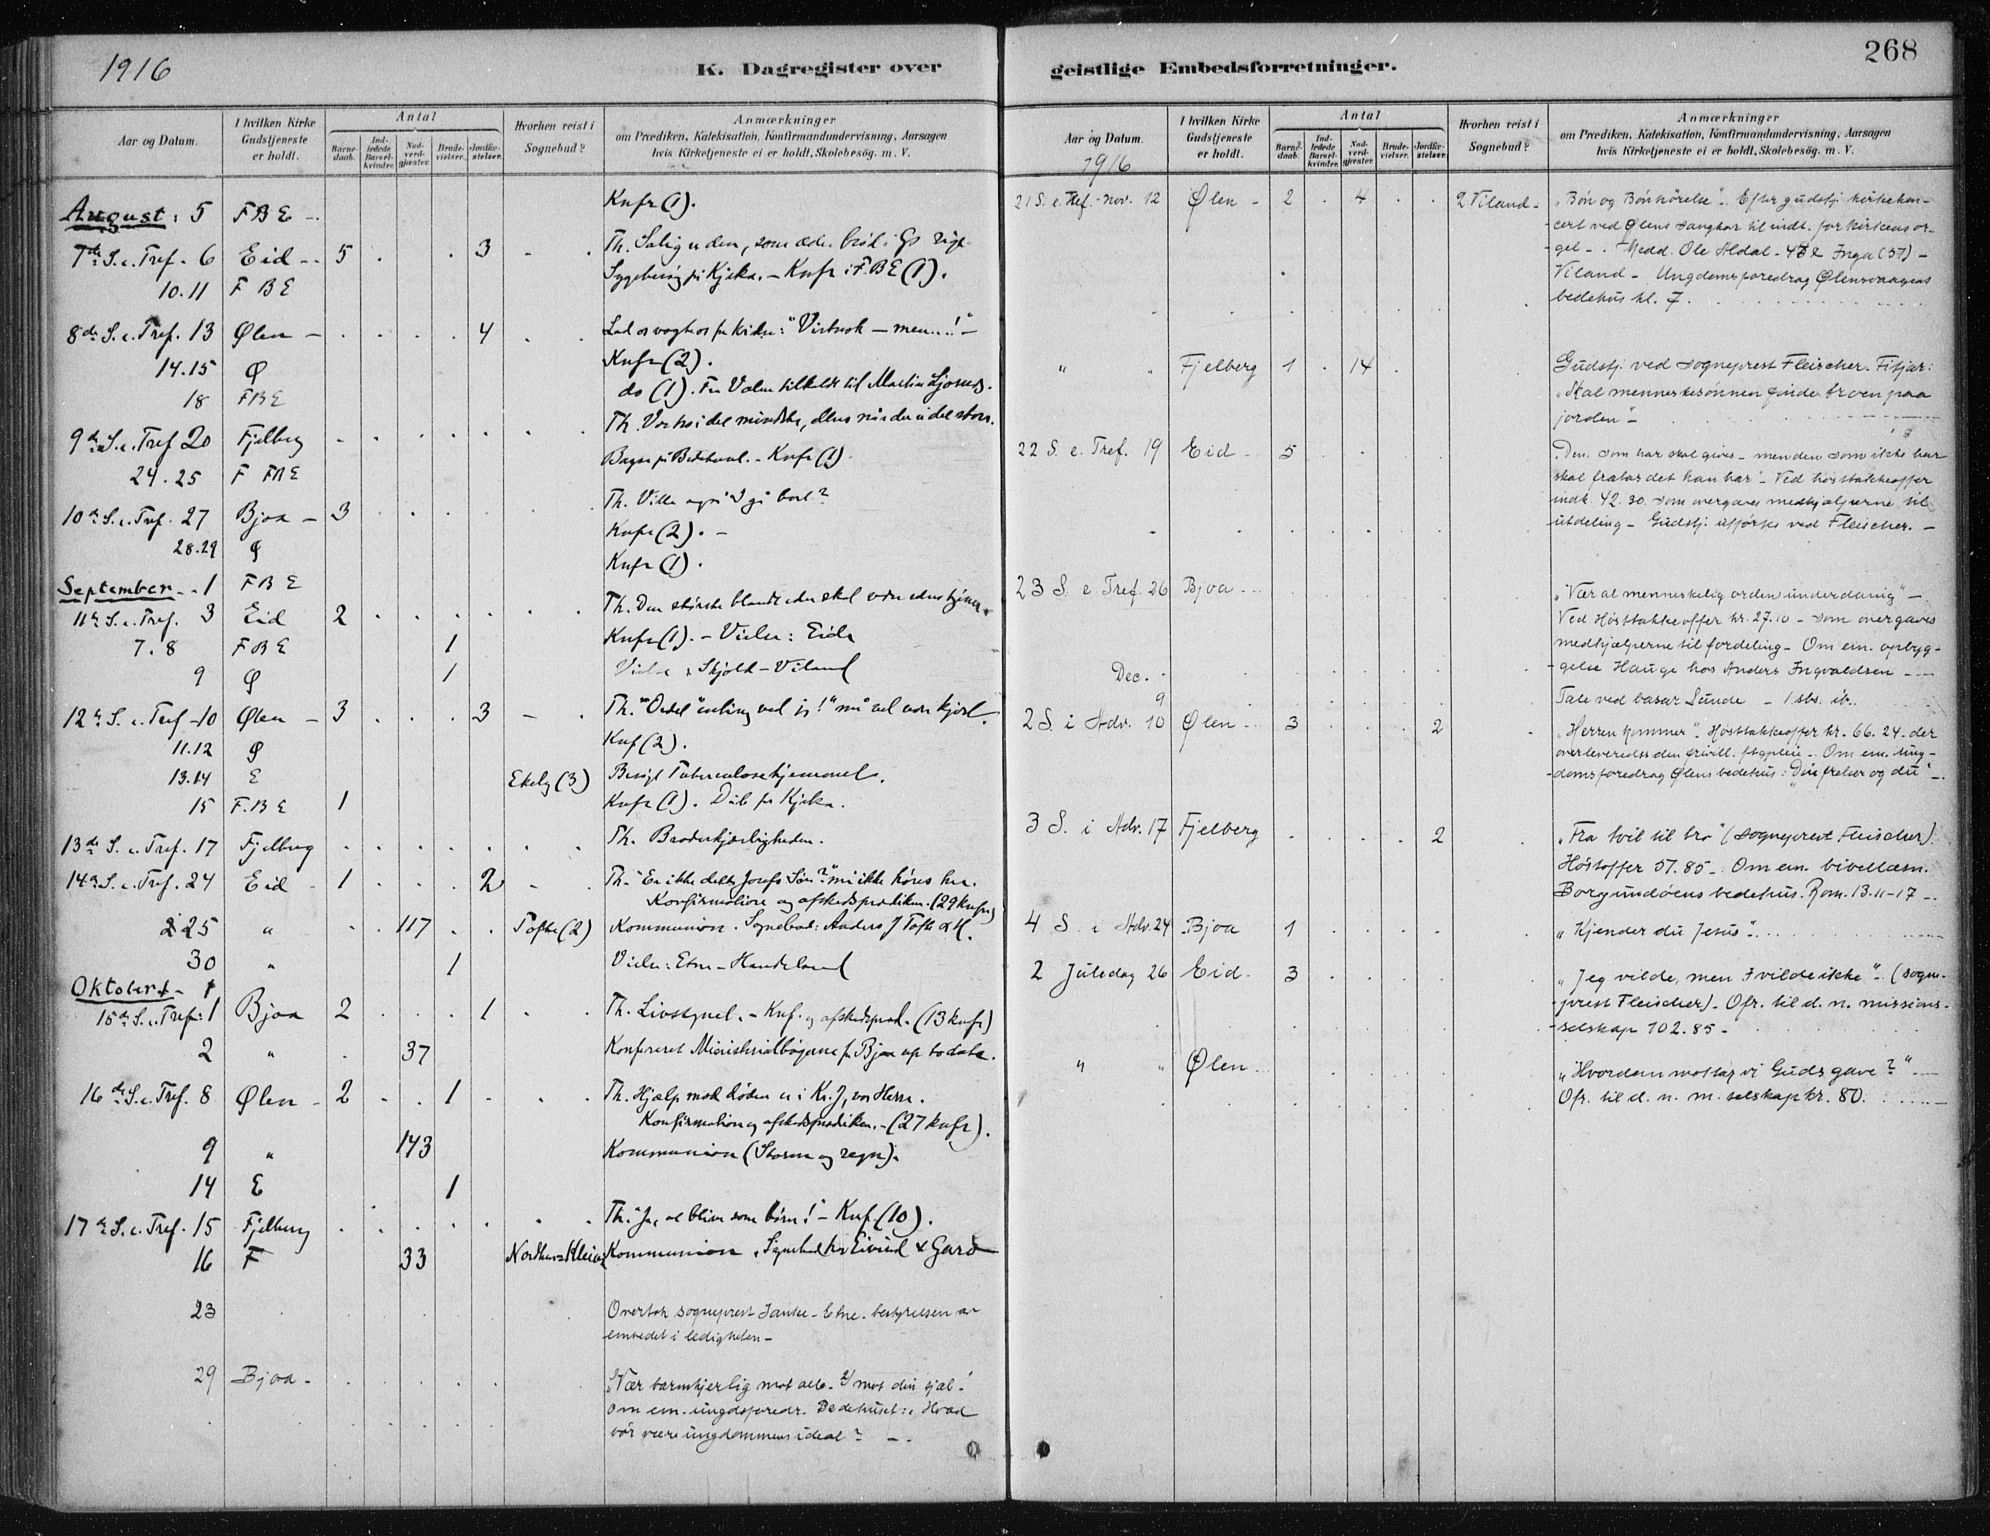 1916
K. Dagregister over
Aar og Datum.
I hvilken Kirke Gudstjeneste er holdt.
Antal
Barnedaab.
Indledede Barselkvinder.
Nadverdgjester.
Brudevielser.
Jordfæstelser.
Hvorhen reist i Sognebud?
Anmærkninger
om Prædiken, Katekisation, Konfirmandundervisning, Aarsagen
hvis Kirketjeneste ei er holdt, Skolebesög. m. V.
August: 5 F B E Knfr (1).
7de S. e. Tref. 6 Eid 5 3 Th. Salig er den, som æder brød i Gs rige
10.11 F B E Sygebesøg på Kjeka. - Knfr i F B E (1).
8de S. e. Tref. 13 Ølen 4 Lad os vogte os for : "Vistnok - men..!"
14.15 Ø Knfr (2).
18 F B E do (1). til Martin
9de S. e. Tref 20 Fjelberg Th. Vær tro i det mindste, ellers når du ei det store.
24.25 F F B E på Bedehuset. - Knfr (1)
10de S. e. Tref. 27 Bjoa 3 Th. Ville også I gå bort?
28.29 Ø Knfr (2). -
September 1 F B E Knfr (1).
11te S. e. Tref. 3 Eid 2 Th. Den største blandt eder skal være eders tjener.
7.8 F B E 1 Knfr (1). - Vielse: Eide
9 Ø 1 Vielse Skjold - Viland
12te S. e. Tref 10 Ølen 3 3 Th.
11.12 Ø Knf (2).
13.14 E Ekely (3) Besøgt Tuberculosehjemmet.
15 F. B E 1 Knfr (1). Dåb på Kjeka.
13de S. e. Tref. 17 Fjelberg Th. Broderkjærligheden.
14de S. e. Tref. 24 Eid 1 2 Th. "Er ikke dette Josefs Søn?" må ikke høres her.
Konfirmation og afskedsprædiken. (29 knfr)
25 " 117 Tofte (2) Kommunion. Sognebud: Anders J Tofte & H.
30 " 1 Vielse: Etne - Handeland
Oktober
15de S. e. Tref: 1 Bjoa 2 1 Th. Livsstpnet. - Knf. og afskedspræd. (13 knfr)
2 " 37 Konfereret Ministerialbøgerne for Bjoa up to date.
16de S. e. Tref. 8 Ølen 2 1 Th. Hjælp mod døden er i Kr. J, vor Herre.
Konfirmation og afskedsprædiken. - (27 knfr).
9 " 143 Kommunion (Storm og regn).
14 E 1
17de S. e. Tref. 15 Fjelberg Th. "Ja, at blive som børn!" - Knf (10).
16 F 33 Kommunion. Sognebud hos Eivind & Gard
23 Overtok sogneprest - Etne. bestyrelsen av
embedet i ledigheten -
29 Bjoa - "Vær barmhjertig mot alle. Og mot din sjæl!
Om em. ungdsforedr. Bedehuset: Hvad
bör være ungdommens ideal?
268
geistlige Embedsforretninger.
Aar og Datum.
1916
I hvilken Kirke Gudstjeneste er holdt.
Antal
Barnedaab.
Indledede Barselkvinder.
Nadverdgjester.
Brudevielser.
Jordfæstelser.
Hvorhen reist i Sognebud?
Anmærkninger
om Prædiken, Katekisation, Konfirmandundervisning, Aarsagen
hvis Kirketjeneste ei er holdt, Skolebesög. m. V.
21 S. e. Tref. nov. 12 Ølen 2 4 2 Viland "Bön og Bönhörelse". Efter gudstj. kirkekon-
cert ved Ølens sangkor til indt. for kirkens or-
gel - Medd. Ole Aldal - 48 & Inga (37) -
Viland - Ungdomsforedrag Ølensvaagens
bedehus kl. 7.
" " Fjelberg 1 14 Gudstj. ved sogneprest Fleischer. Fitjar:
"Skal menneskesönnen finde troen paa
jorden" -
22 S. e. Tref. 19 Eid 5 "Den, som har skal gives - men den som ikke har
skal fratas det han har" - Ved hösttakkeoffer
indk. 42.30. som overgaves medhjælperne til
utdeling - Gudstj. utförtes ved Fleischer. -
23 S. e. Tref. 26 Bjoa "Vær al menneskelig orden underdanig" -
Ved Hösttakkeoffer kr. 27.10 - som overgaves
medhjælperne til fordeling - Om em. opbyg-
gelse Hauge hos Anders Ingvaldsen -
Dec.
9 Tale ved basar Sunde - 1 sbs. ib.
2 S. i Adv. 10 Ølen 3 2 "Herren kommer". Hösttakkeoffer kr. 66.24 - der
overleveredes den frivill. - Om em. ung-
domsforedrag Ølens bedehus: "Din frelser og du" -
3 S. i Adv. 17 Fjelberg 2 "Fra tvil til tro" (sogneprest Fleischer).
Höstoffer 57.85 - Om em. bibellæsn.
Borgundöens bedehus. Rom. 13.11-17 -
4 S. i Adv. 24 Bjoa 1 "Kjender du Jesus" -
2 Juledag 26 Eid 3 "Jeg vilde, men I vilde ikke" - (sogne-
prest Fleischer) - Ofr. til d. n. missions-
selskap 102.85 -
" " Ølen "Hvordan mottar vi Guds gave?"
Ofr. til d. n. m. selskap kr. 80.